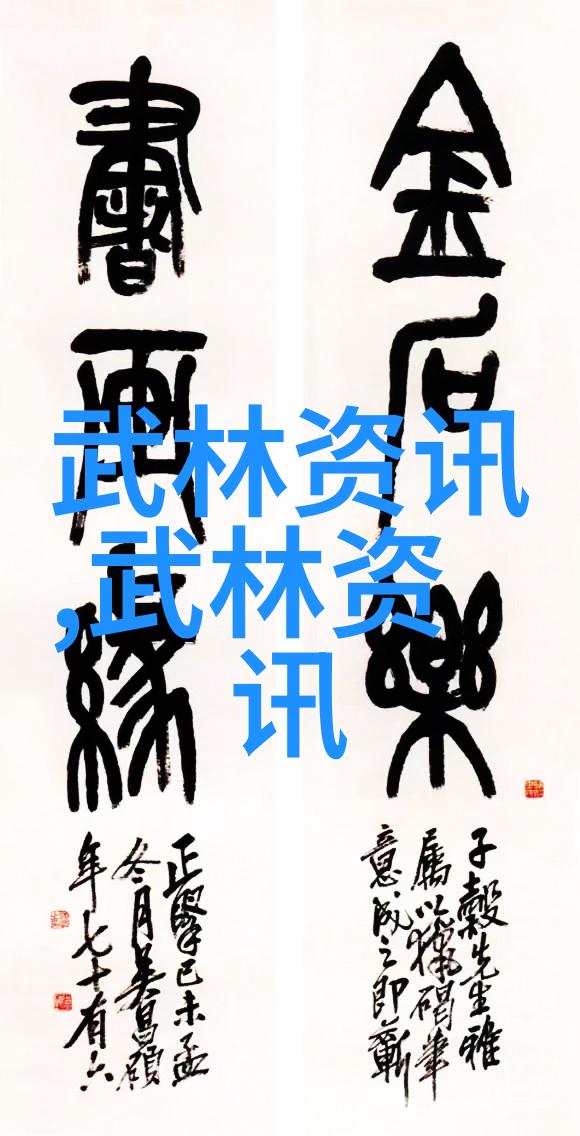 金石樂
子穀先生雅
屬以獵碣筆
意成之即蘄
書畫緣
正 己未孟
冬月吳昌碩
年七十有六
武林资讯
,武林资
讯